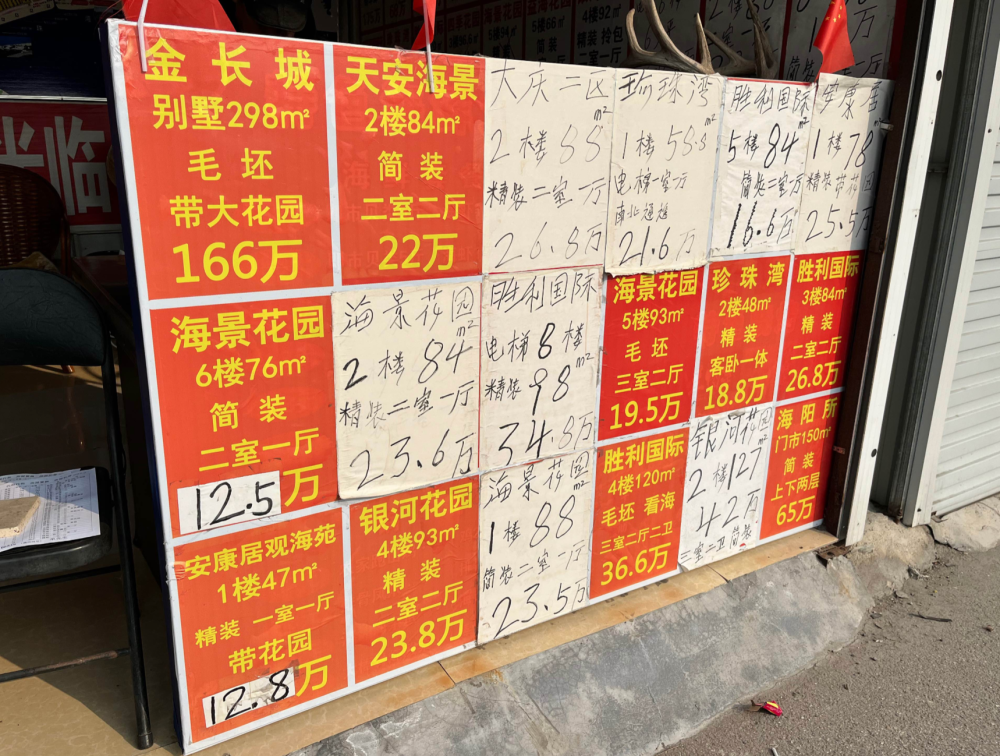 金长城
别墅298m²
毛坯
带大花园
166万
天安海景
2楼84m²
简装
二室二厅
22万
大庆二区
m²
2楼88
精装二室一厅
26.8万
珍珠湾
m²
1楼58.8
电梯一室一方
南北通透
21.6万
胜利国际
m²
5楼84
简装二室一方
16.6万
安康居
m²
1楼78
精装带花园
25.5万
海景花园
6楼76m²
简装
二室一厅
12.5万
海景花园
m²
2楼84
精装二室一厅
23.6万
胜利国际
电梯8楼
m²
精装98
34.8万
海景花园
5楼93m²
毛坯
三室二厅
19.5万
珍珠湾
2楼48m²
精装
客卧一体
18.8万
胜利国际
3楼84m²
精装
二室二厅
26.8万
安康居观海苑
1楼47m²
精装 一室一厅
带花园
12.8万
银河花园
4楼93m²
精装
二室二厅
23.8万
海景花园
m²
1楼88
简装二室一厅
23.5万
胜利国际
4楼120m²
毛坯 看海
三室二厅二卫
36.6万
银河花园
m²
2楼127
42万
三室二卫简装
海阳所
门市150m²
简装
上下两层
65万